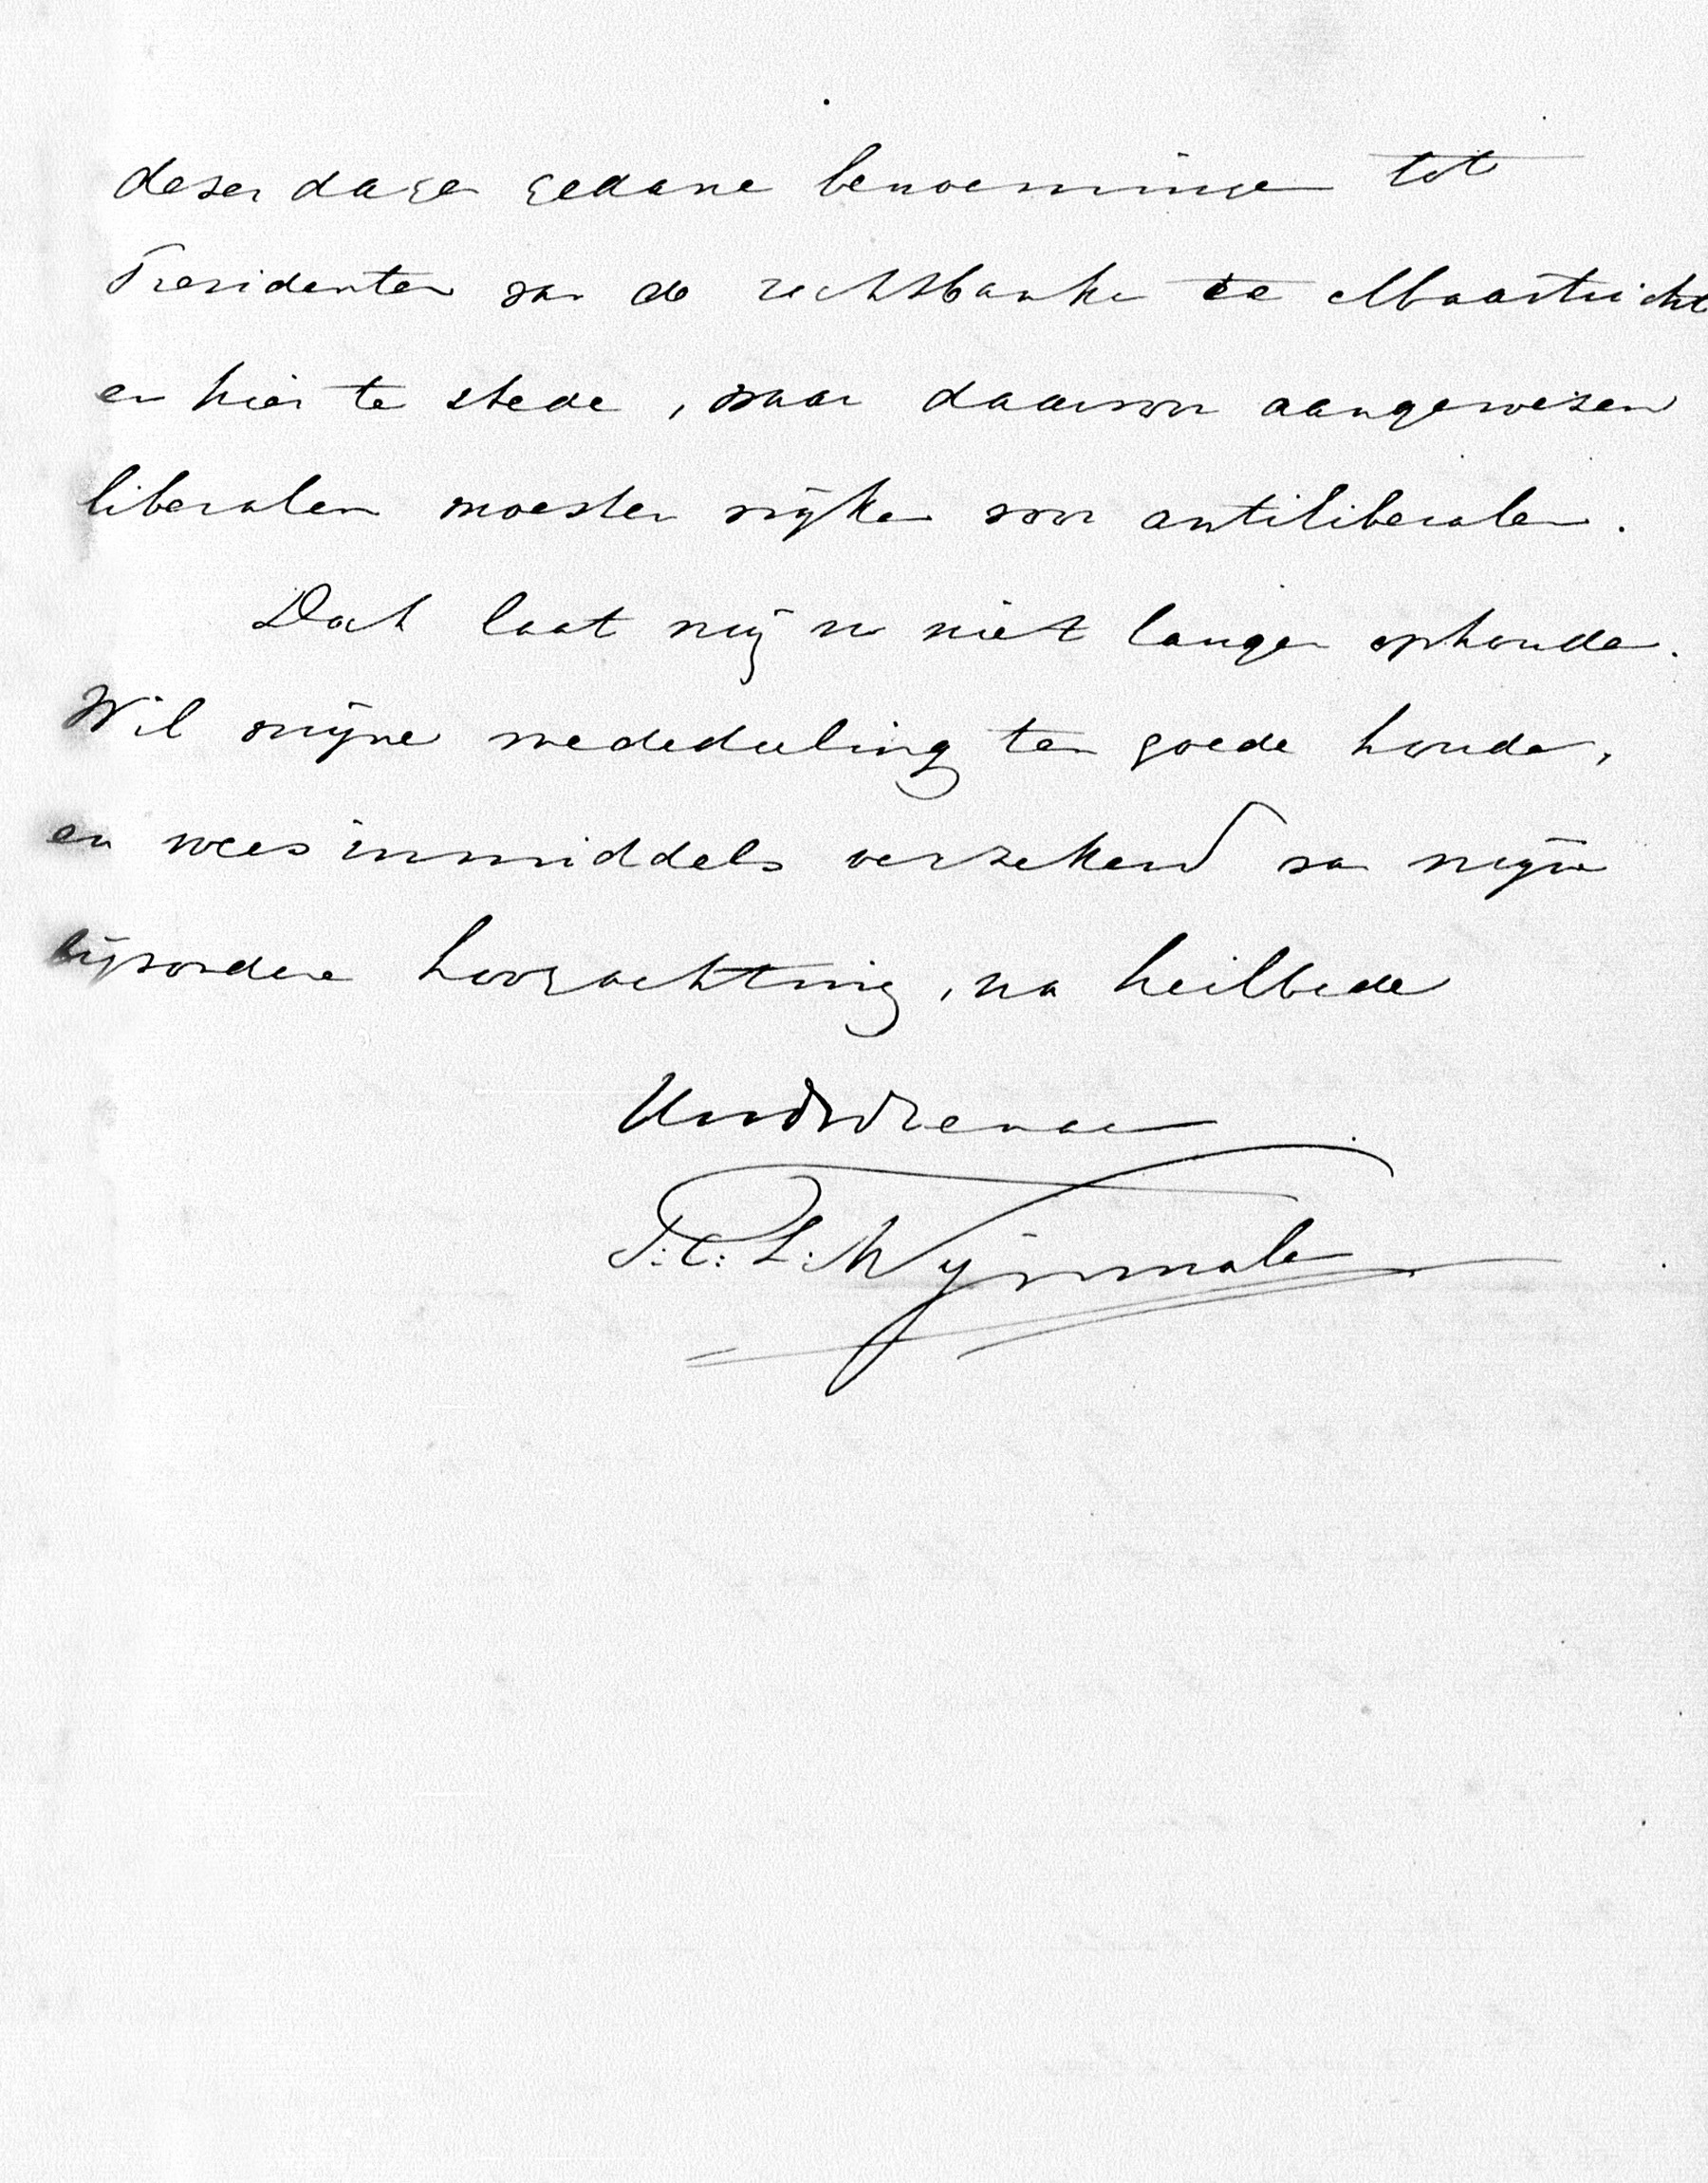 dezer dagen gedane benoemingen tot
Presidenten van de rechtbanken te Maastricht
en hier te stede, waar daarvoor aangewezen
liberalen moesten wijken voor antiliberalen.
Doch laat mij u niet langer ophouden.
Wil mijne mededeeling ten goede houden,
en wees inmiddels verzekerd van mijne
bijzondere hoogachting, na heilbede
UwEdDienaar
T: C: L: Wijnmalen